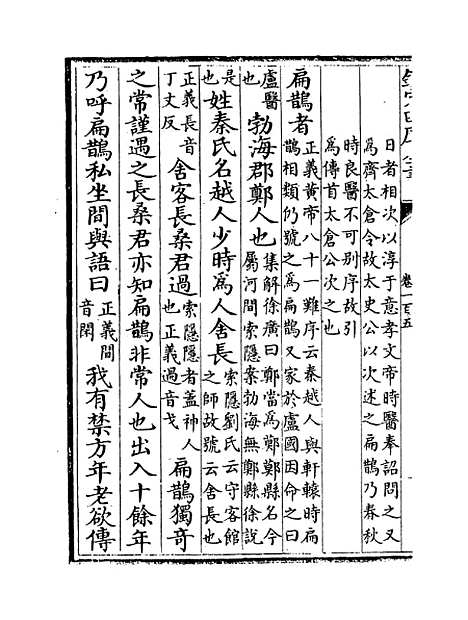 卷一百五
日者相次以淳于意孝文帝時醫奉詔問之又
為齊太倉令故太史公以次述之扁鵲乃春秋
時良醫不可别序故引
為傳首太倉公次之也
扁鵲者正義黄帝八十一難序云秦越人與軒轅時扁鵲相類仍號之為扁鵲又家於盧國因命之曰
盧醫也勃海郡鄭人也集解徐廣曰鄭當為鄚鄚縣名今屬河間索隱案勃海無鄭縣徐説
是也姓秦氏名越人少時為人舍長索隱劉氏云守客館之師故號云舍長也
正義長音丁丈反舍客長桑君過索隱隱者蓋神人也正義過音戈扁鵲獨奇
之常謹遇之長桑君亦知扁鵲非常人也出入十餘年
乃呼扁鵲私坐間與語曰正義間音閑我有禁方年老欲傳